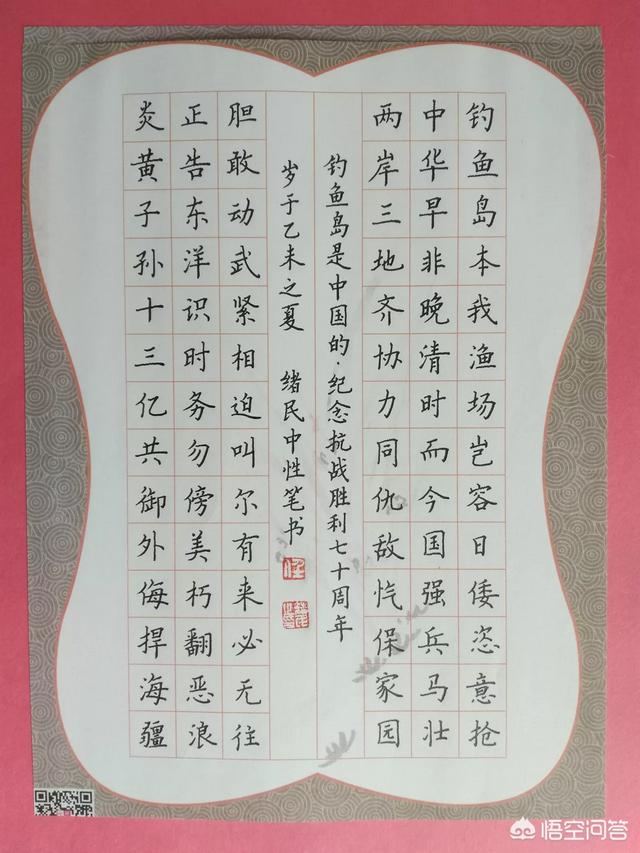 钓鱼岛本我渔场岂容日倭恣意抢
中华早非晚清时而今国强兵马壮
两岸三地齐协力同仇敌忾保家园
钓鱼岛是中国的·纪念抗战胜利七十周年
岁于乙未之夏 绪民中性笔书
胆敢动武紧相迫叫尔有来必无往
正告东洋识时务勿傍美朽翻恶浪
炎黄子孙十三亿共御外侮捍海疆
悟空问答